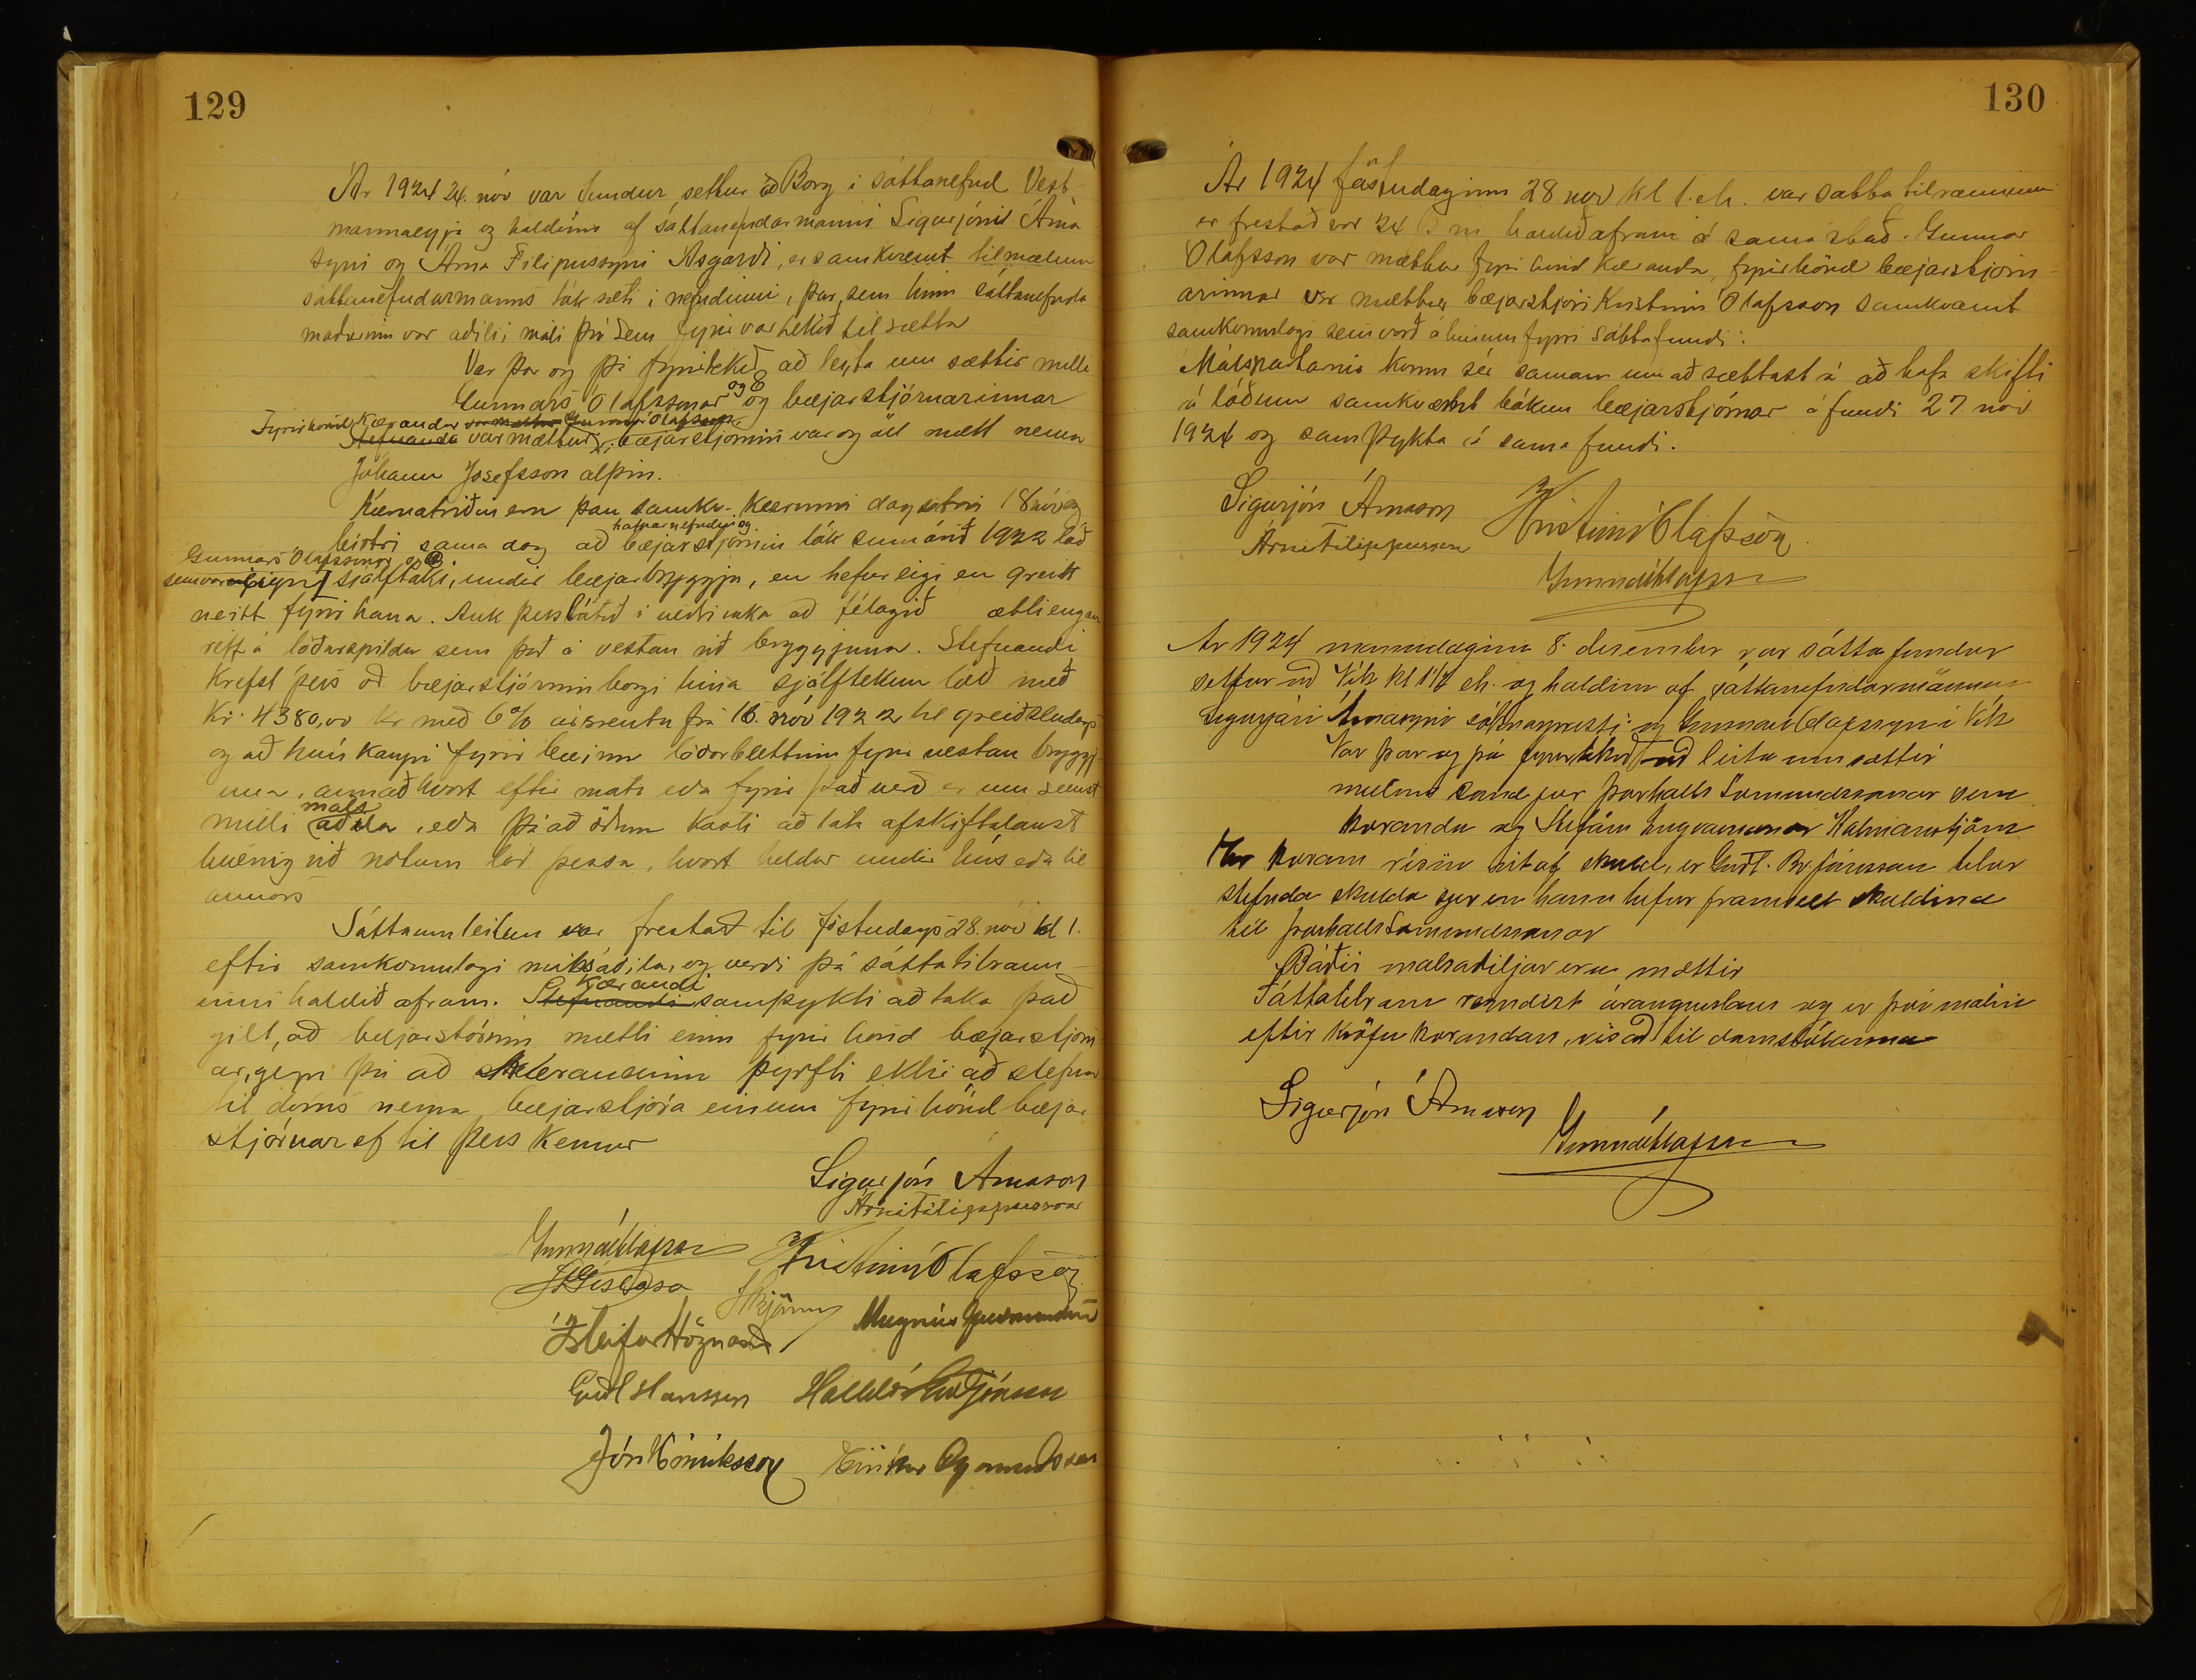 129
Ár 1924 24. nóv var fundur settur að Borg í sáttanefnd Vest-
mannaeyja og haldinn af sáttanefndarmanni Sigurjóni Árna
syni og Árna Filipussyni Ásgarði, er samkvæmt tilmælum
sáttanefndarmanns tók sæti í nefndinni, þar sem hinn sáttanefnda
maðurinn var aðili í máli því sem fyrir var tekið til sætta
Var þar og þá fyrirtekið að leyta um sættir milli
Gunnars Ólafssonar og Co og bæjarstjórnarinnar
Fyrir hönd Kæranda var mættur Gunnar Ólafsson
Stefnanda var mættur, bæjarstjórnin var og öll mætt nema
Jóhann Jósefsson alþm.
Kæruatriðin eru þau samkv. kærunni dagsettri 18 nóv og
birtri sama dag að hafnarnefndin og bæjarstjórnin tók sumarið 1922 lóð
Gunnars Ólafssonar og Co
sem var eign sjálftaki, undir bæjarbryggju, en hefur eigi en greitt
neitt fyrir hana. Auk þess látið í veðri vaka að félagið ætti engan
rétt á lóðarspildu sem það á vestan við bryggjuna. Stefnandi
krefst þess að bæjarstjórnin borgi hina sjálfteknu lóð með
Kr. 4380,00 kr með 6% ársrentu frá 16. nóv 1922 til greiðsludags
og að hún kaupi fyrir bæinn lóðarblettinn fyrir vestan bryggj
una, annað hvort eftir mati eða fyrir það verð er um semst
milli málsaðila, eða þá að öðrum kosti að láta afskiftalaust
hvernig við notum lóð þessa, hvort heldur undir hús eða til
annars
Sáttaumleitun var frestað til föstudags 28. nóv kl 1.
eftir samkomulagi málsaðila, og verði þá sáttatilraun
inni haldið áfram. Stefnandi Kærandi samþykti að taka það
gilt, að bæjarstórnin mætti einn fyrir hönd bæjarstjórn
ar, gegn því að kærandinn þyrfti ekki að stefna
til dóms nema bæjarstjóra einum fyrir hönd bæjar
stjórnar ef til þess kemur
Sigurjón Árnason
Árni Filippusson
Gunnar Ólafsson Kristinn Ólafsson
JÞGíslason
Ísleifur Högnason Magnús Guðmundsson
Guðl Hansson Halldór Guðjónsson
Jón Hinriksson Eiríkur Ögmundsson
130
Ár 1924 föstudaginn 28. nóv kl 1. eh. var sáttatilrauninni
er frestað var 24 þ m haldið áfram á sama stað. Gunnar
Ólafsson var mættur fyrir hönd kæranda, fyrir hönd bæjarstjórn
arinnar var mættur bæjarstjóri Kristinn Ólafsson samkvæmt
samkomulagi sem varð á hinum fyrri sáttafundi.
Málspartarnir komu sér saman um að sættast á að hafa skifti
á lóðum samkvæmt bókun bæjarstjórnar á fundi 27. nóv
1924 og samþykta á sama fundi.
Sigurjón Árnason Kristinn Ólafsson
Árni Filippusson
Gunnar Ólafsson
Ár 1924 mánudaginn 8. desember var sáttafundur
settur að Vík kl 1½ eh. og haldinn af sáttanefndarmönnum
Sigurjóni Árnasyni sóknarpresti og Gunnari Ólafssyni Vík
Var þar og þá fyrirtekið að leita um sættir
milli Þorhalls Sæmundssonar sem
kæranda og Stefáns Ingvarssonar Kalmanstjörn
Er kæran risin út af skuld, er Guðl. Br. Jónsson telur
stefnda skulda sjer en hann hefur framselt skuldina
til Þorhalls Sæmundssonar
Báðir málsaðiljar eru mættir
Sáttatilraun reyndist árangurslaus og er því málinu
eftir kröfu kærandans, vísað til dómstólanna
Sigurjón Árnason
Gunnar Ólafsson